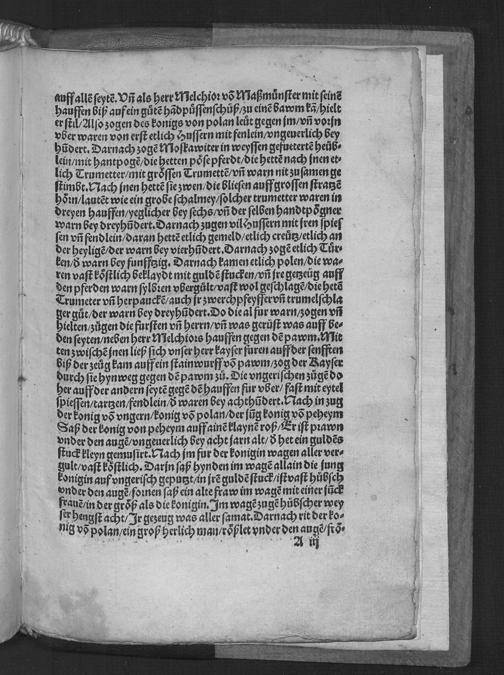 auff allē seytē. Vñ als herr Melchior vō Maßmünster mit seinē
hauffen biß auf ein gůtē hādpüssenschüß / zu einē bawm kā / hielt
er stil / Also zogen des konigs von polan leüt gegen jm / vñ vorjn
vber waren von erst etlich Hussern mit fenlein / vngeuerlich bey
hūdert. Darnach zogē Moskawiter in weyssen gefueterte heüb-
lein / mit hantpogē / die hetten pöse pferdt / die hettē nach jnen et-
lich Trumetter / mit grössen Trumettē / vñ warn nit zusamen ge
stimbt. Nach jnen hettē sie zwen / die bliesen auff grossen stratzē
hörn / lautēt wie ein grobe schalmey / solcher trumetter waren in
dreyen hauffen / yeglicher bey sechs / vñ der selben handtpōgner
warn bey dreyhūdert. Darnach zugen vil Hussern mit jren spief
sen vñ fendlein / daran hettē etlich gemeld / etlich creütz / etlich an
der heyligē / der warn bey vierhūdert. Darnach zogē etlich Tür-
ken / d̄ warn bey funffzig. Darnach kamen etlich polen / die wa-
ren vast köstlich beklaydt mit guldē stucken / vñ jre getzeüg auff
den pferden warn sylbren vbergült / vast wol geschlagē / die hetē
Trumeter vñ herpauckē / auch jr zwerchpfeyffer vñ trumelschla
ger gůt / der warn bey dreyhūdert. Do die al fur warn / zogen vñ
hielten / zügen die fursten vñ herrn / vñ was gerüst was auff be-
den seyten / neben herr Melchiors hauffen gegen dē pawm. Mit
ten zwischē jnen ließ sich vnser herr kayser furen auff der senfften
biß der zeüg kam auff ein stainwurff vō pawm / zog der Kayser
durch sie hynweg gegen dē pawm zů. Die vngerischen zügē do
her auff der andern seytē gegē dē hauffen fur vber / fast mit eytel
spiessen / tartzen / fendlein / d̄ waren bey achthūdert. Nach in zug
der konig vō vngern / konig vō polan / der jüg konig vō peheym
Saß der konig von peheym auff ainē klaynē roß / Er ist prawn
vnder den augē / vngeuerlich bey acht jarn alt / d̄ het ein guldēs
stuck kleyn gemusirt. Nach jm fur der konigin wagen aller ver-
gult / vast köstlich. Darjn saß hynden im wagē allain die jung
konigin auf vngerisch geputzt / in jrē guldē stuck / ist vast hübsch
vnder den augē / fornen saß ein alte fraw im wagē mit einer jück
frauē / in der größ als die konigin. Im wagē zugē hübscher wey
ser hengst acht / Ir gezeug was aller samat. Darnach rit der ko-
nig vō polan / ein groß herlich man / rößlet vnder den augē / frö-
A iij